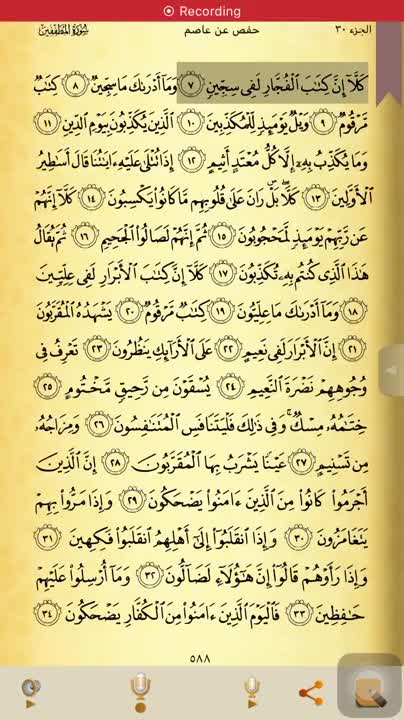 Recording
الجزء ٣٠
حفص عن عاصم
سُورَةُ المُطَفِّفِين
كَلَّآ إِنَّ كِتَٰبَ ٱلۡفُجَّارِ لَفِي سِجِّينٖ ٧ وَمَآ أَدۡرَىٰكَ مَا سِجِّينٞ ٨ كِتَٰبٞ
مَّرۡقُومٞ ٩ وَيۡلٞ يَوۡمَئِذٖ لِّلۡمُكَذِّبِينَ ١٠ ٱلَّذِينَ يُكَذِّبُونَ بِيَوۡمِ ٱلدِّينِ ١١
وَمَا يُكَذِّبُ بِهِۦٓ إِلَّا كُلُّ مُعۡتَدٍ أَثِيمٍ ١٢ إِذَا تُتۡلَىٰ عَلَيۡهِ ءَايَٰتُنَا قَالَ أَسَٰطِيرُ
ٱلۡأَوَّلِينَ ١٣ كَلَّاۖ بَلۡۜ رَانَ عَلَىٰ قُلُوبِهِم مَّا كَانُواْ يَكۡسِبُونَ ١٤ كَلَّآ إِنَّهُمۡ
عَن رَّبِّهِمۡ يَوۡمَئِذٖ لَّمَحۡجُوبُونَ ١٥ ثُمَّ إِنَّهُمۡ لَصَالُواْ ٱلۡجَحِيمِ ١٦ ثُمَّ يُقَالُ
هَٰذَا ٱلَّذِي كُنتُم بِهِۦ تُكَذِّبُونَ ١٧ كَلَّآ إِنَّ كِتَٰبَ ٱلۡأَبۡرَارِ لَفِي عِلِّيِّينَ
١٨ وَمَآ أَدۡرَىٰكَ مَا عِلِّيُّونَ ١٩ كِتَٰبٞ مَّرۡقُومٞ ٢٠ يَشۡهَدُهُ ٱلۡمُقَرَّبُونَ
٢١ إِنَّ ٱلۡأَبۡرَارَ لَفِي نَعِيمٍ ٢٢ عَلَى ٱلۡأَرَآئِكِ يَنظُرُونَ ٢٣ تَعۡرِفُ فِي
وُجُوهِهِمۡ نَضۡرَةَ ٱلنَّعِيمِ ٢٤ يُسۡقَوۡنَ مِن رَّحِيقٖ مَّخۡتُومٍ ٢٥
خِتَٰمُهُۥ مِسۡكٞۚ وَفِي ذَٰلِكَ فَلۡيَتَنَافَسِ ٱلۡمُتَنَٰفِسُونَ ٢٦ وَمِزَاجُهُۥ
مِن تَسۡنِيمٍ ٢٧ عَيۡنٗا يَشۡرَبُ بِهَا ٱلۡمُقَرَّبُونَ ٢٨ إِنَّ ٱلَّذِينَ
أَجۡرَمُواْ كَانُواْ مِنَ ٱلَّذِينَ ءَامَنُواْ يَضۡحَكُونَ ٢٩ وَإِذَا مَرُّواْ بِهِمۡ
يَتَغَامَزُونَ ٣٠ وَإِذَا ٱنقَلَبُوٓاْ إِلَىٰٓ أَهۡلِهِمُ ٱنقَلَبُواْ فَكِهِينَ ٣١
وَإِذَا رَأَوۡهُمۡ قَالُوٓاْ إِنَّ هَٰٓؤُلَآءِ لَضَآلُّونَ ٣٢ وَمَآ أُرۡسِلُواْ عَلَيۡهِمۡ
حَٰفِظِينَ ٣٣ فَٱلۡيَوۡمَ ٱلَّذِينَ ءَامَنُواْ مِنَ ٱلۡكُفَّارِ يَضۡحَكُونَ ٣٤
٥٨٨